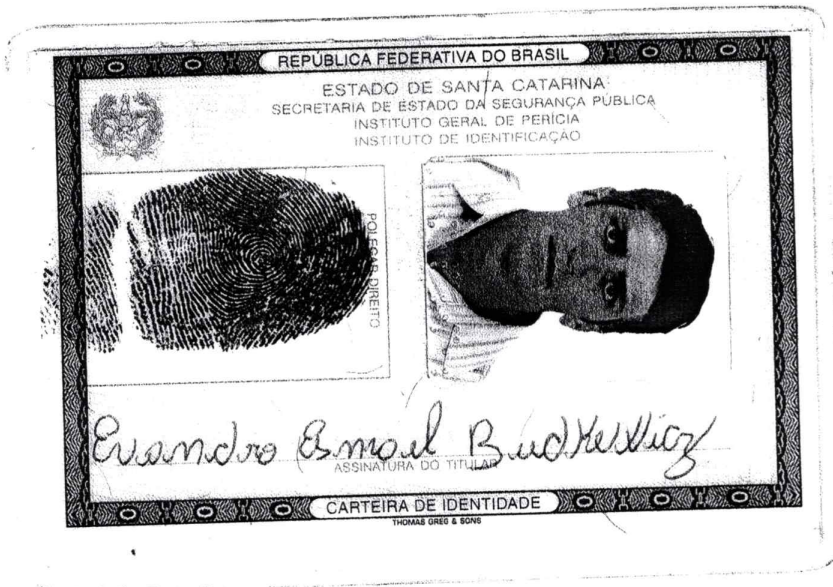 REPÚBLICA FEDERATIVA DO BRASIL
ESTADO DE SANTA CATARINA
SECRETARIA DE ESTADO DA SEGURANÇA PÚBLICA
INSTITUTO GERAL DE PERÍCIA
INSTITUTO DE IDENTIFICAÇÃO
POLEGAR DIREITO
Evandro Ismael
ASSINATURA DO TITULAR
CARTEIRA DE IDENTIDADE
THOMAS GREG & SONS